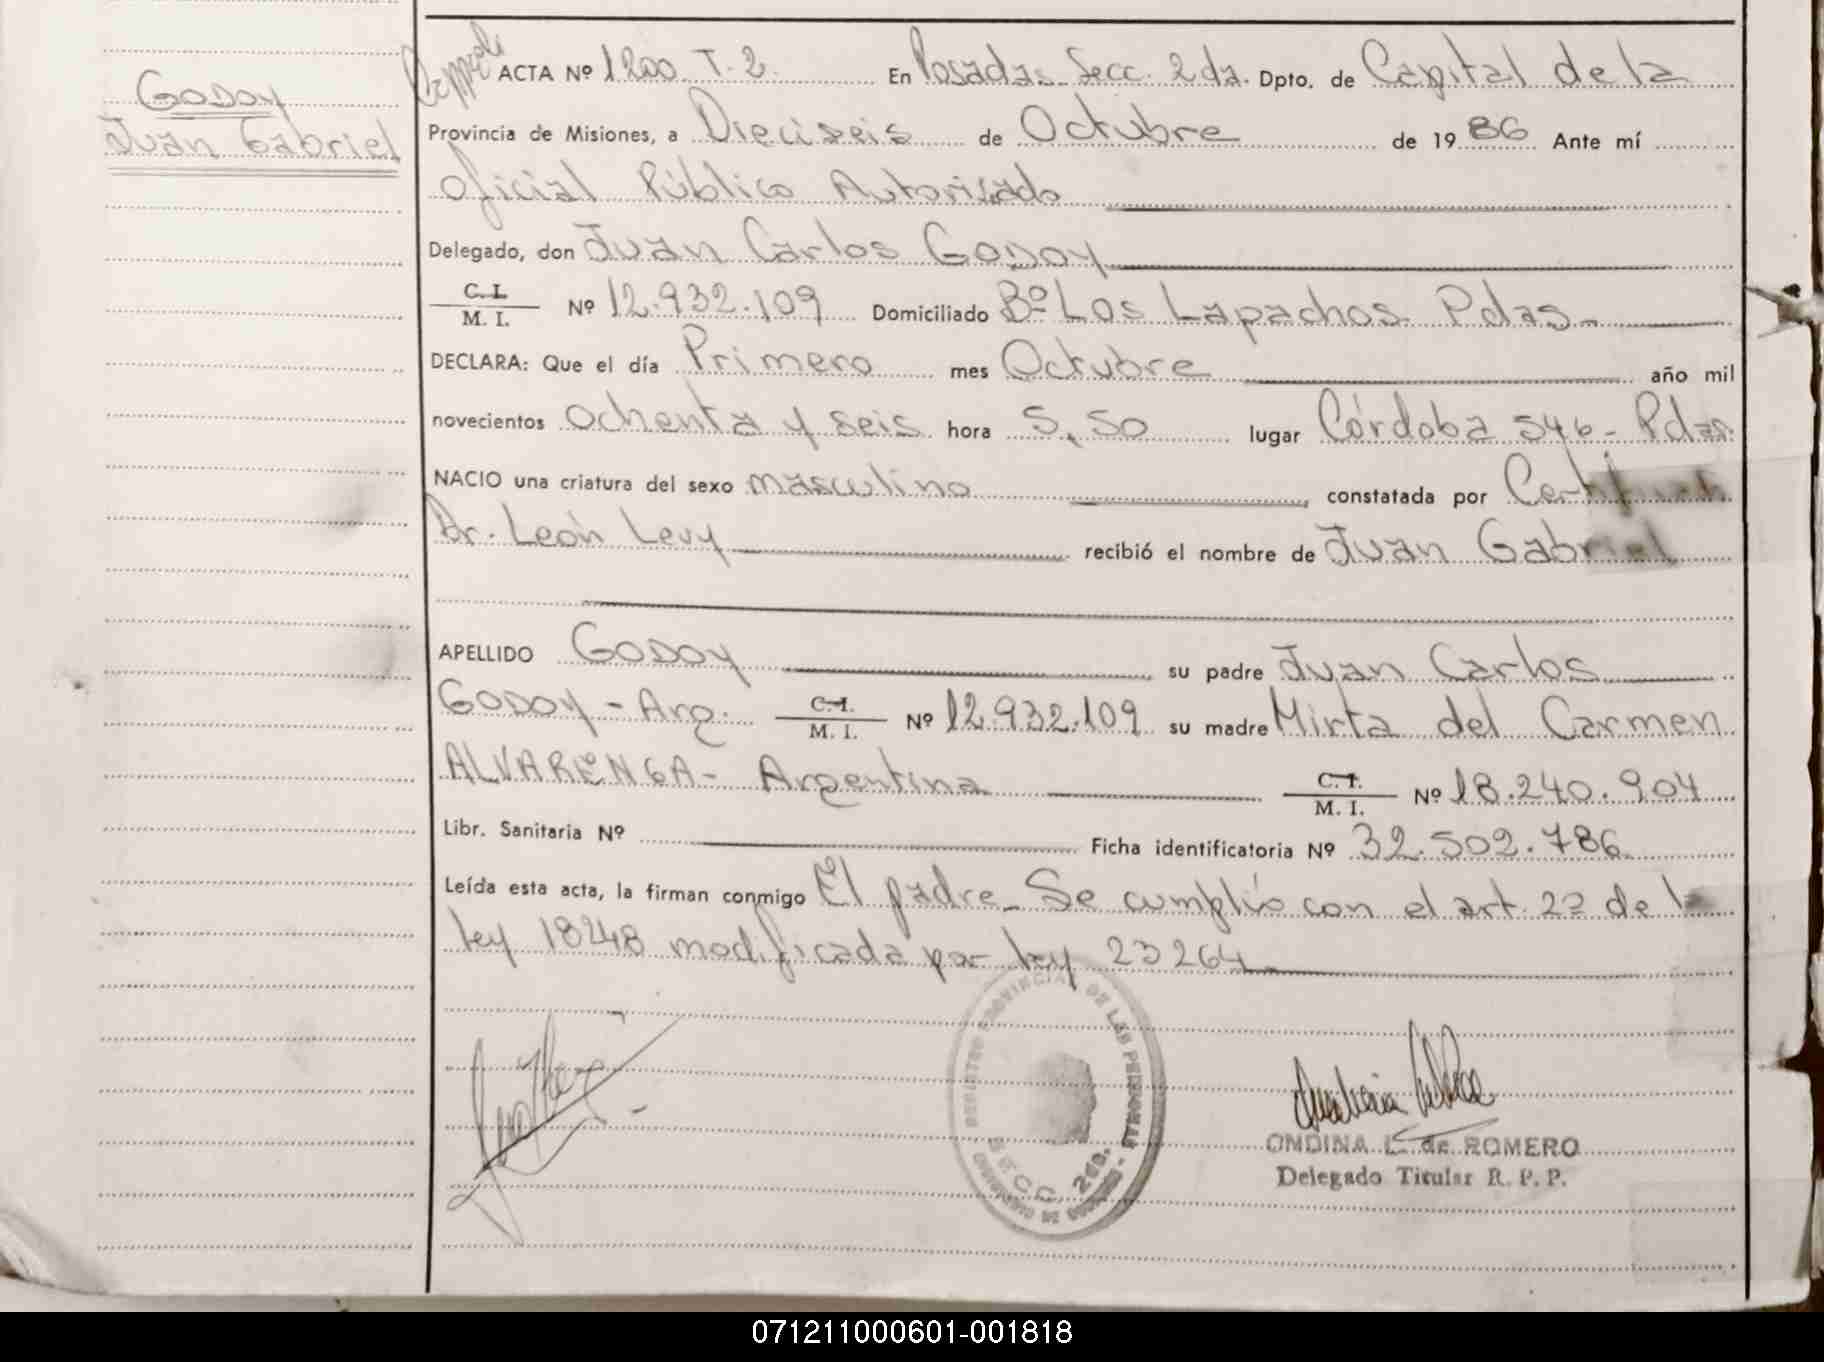 GODOY
Juan Gabriel
ACTA Nº 1200 T. 2. En Posadas Secc. 2da. Dpto. de Capital de la
Provincia de Misiones, a Dieciseis de Octubre de 1986 Ante mí
Oficial Público Autorizado
Delegado, don Juan Carlos GODOY
C. I. M. I. Nº 12.932.109 Domiciliado Bº Los Lapachos Pdas-
DECLARA: Que el día Primero mes Octubre año mil
novecientos Ochenta y seis hora 5,50 lugar Córdoba 546- Pdas
NACIO una criatura del sexo masculino constatada por
Dr. León Levy recibió el nombre de Juan Gabriel
APELLIDO GODOY su padre Juan Carlos
GODOY - Arg. C. I. M. I. Nº 12.932.109 su madre Mirta del Carmen
ALVARENGA- Argentina C. I. M. I. Nº 18.240.904
Libr. Sanitaria Nº Ficha identificatoria Nº 32.502.786
Leída esta acta, la firman conmigo El padre_ Se cumplió con el art. 2º de la
ley 18248 modificada por ley 23264
REGISTRO PROVINCIAL DE LAS PERSONAS
SECC. 2da.
ONDINA L. de ROMERO
Delegado Titular R. P. P.
071211000601-001818